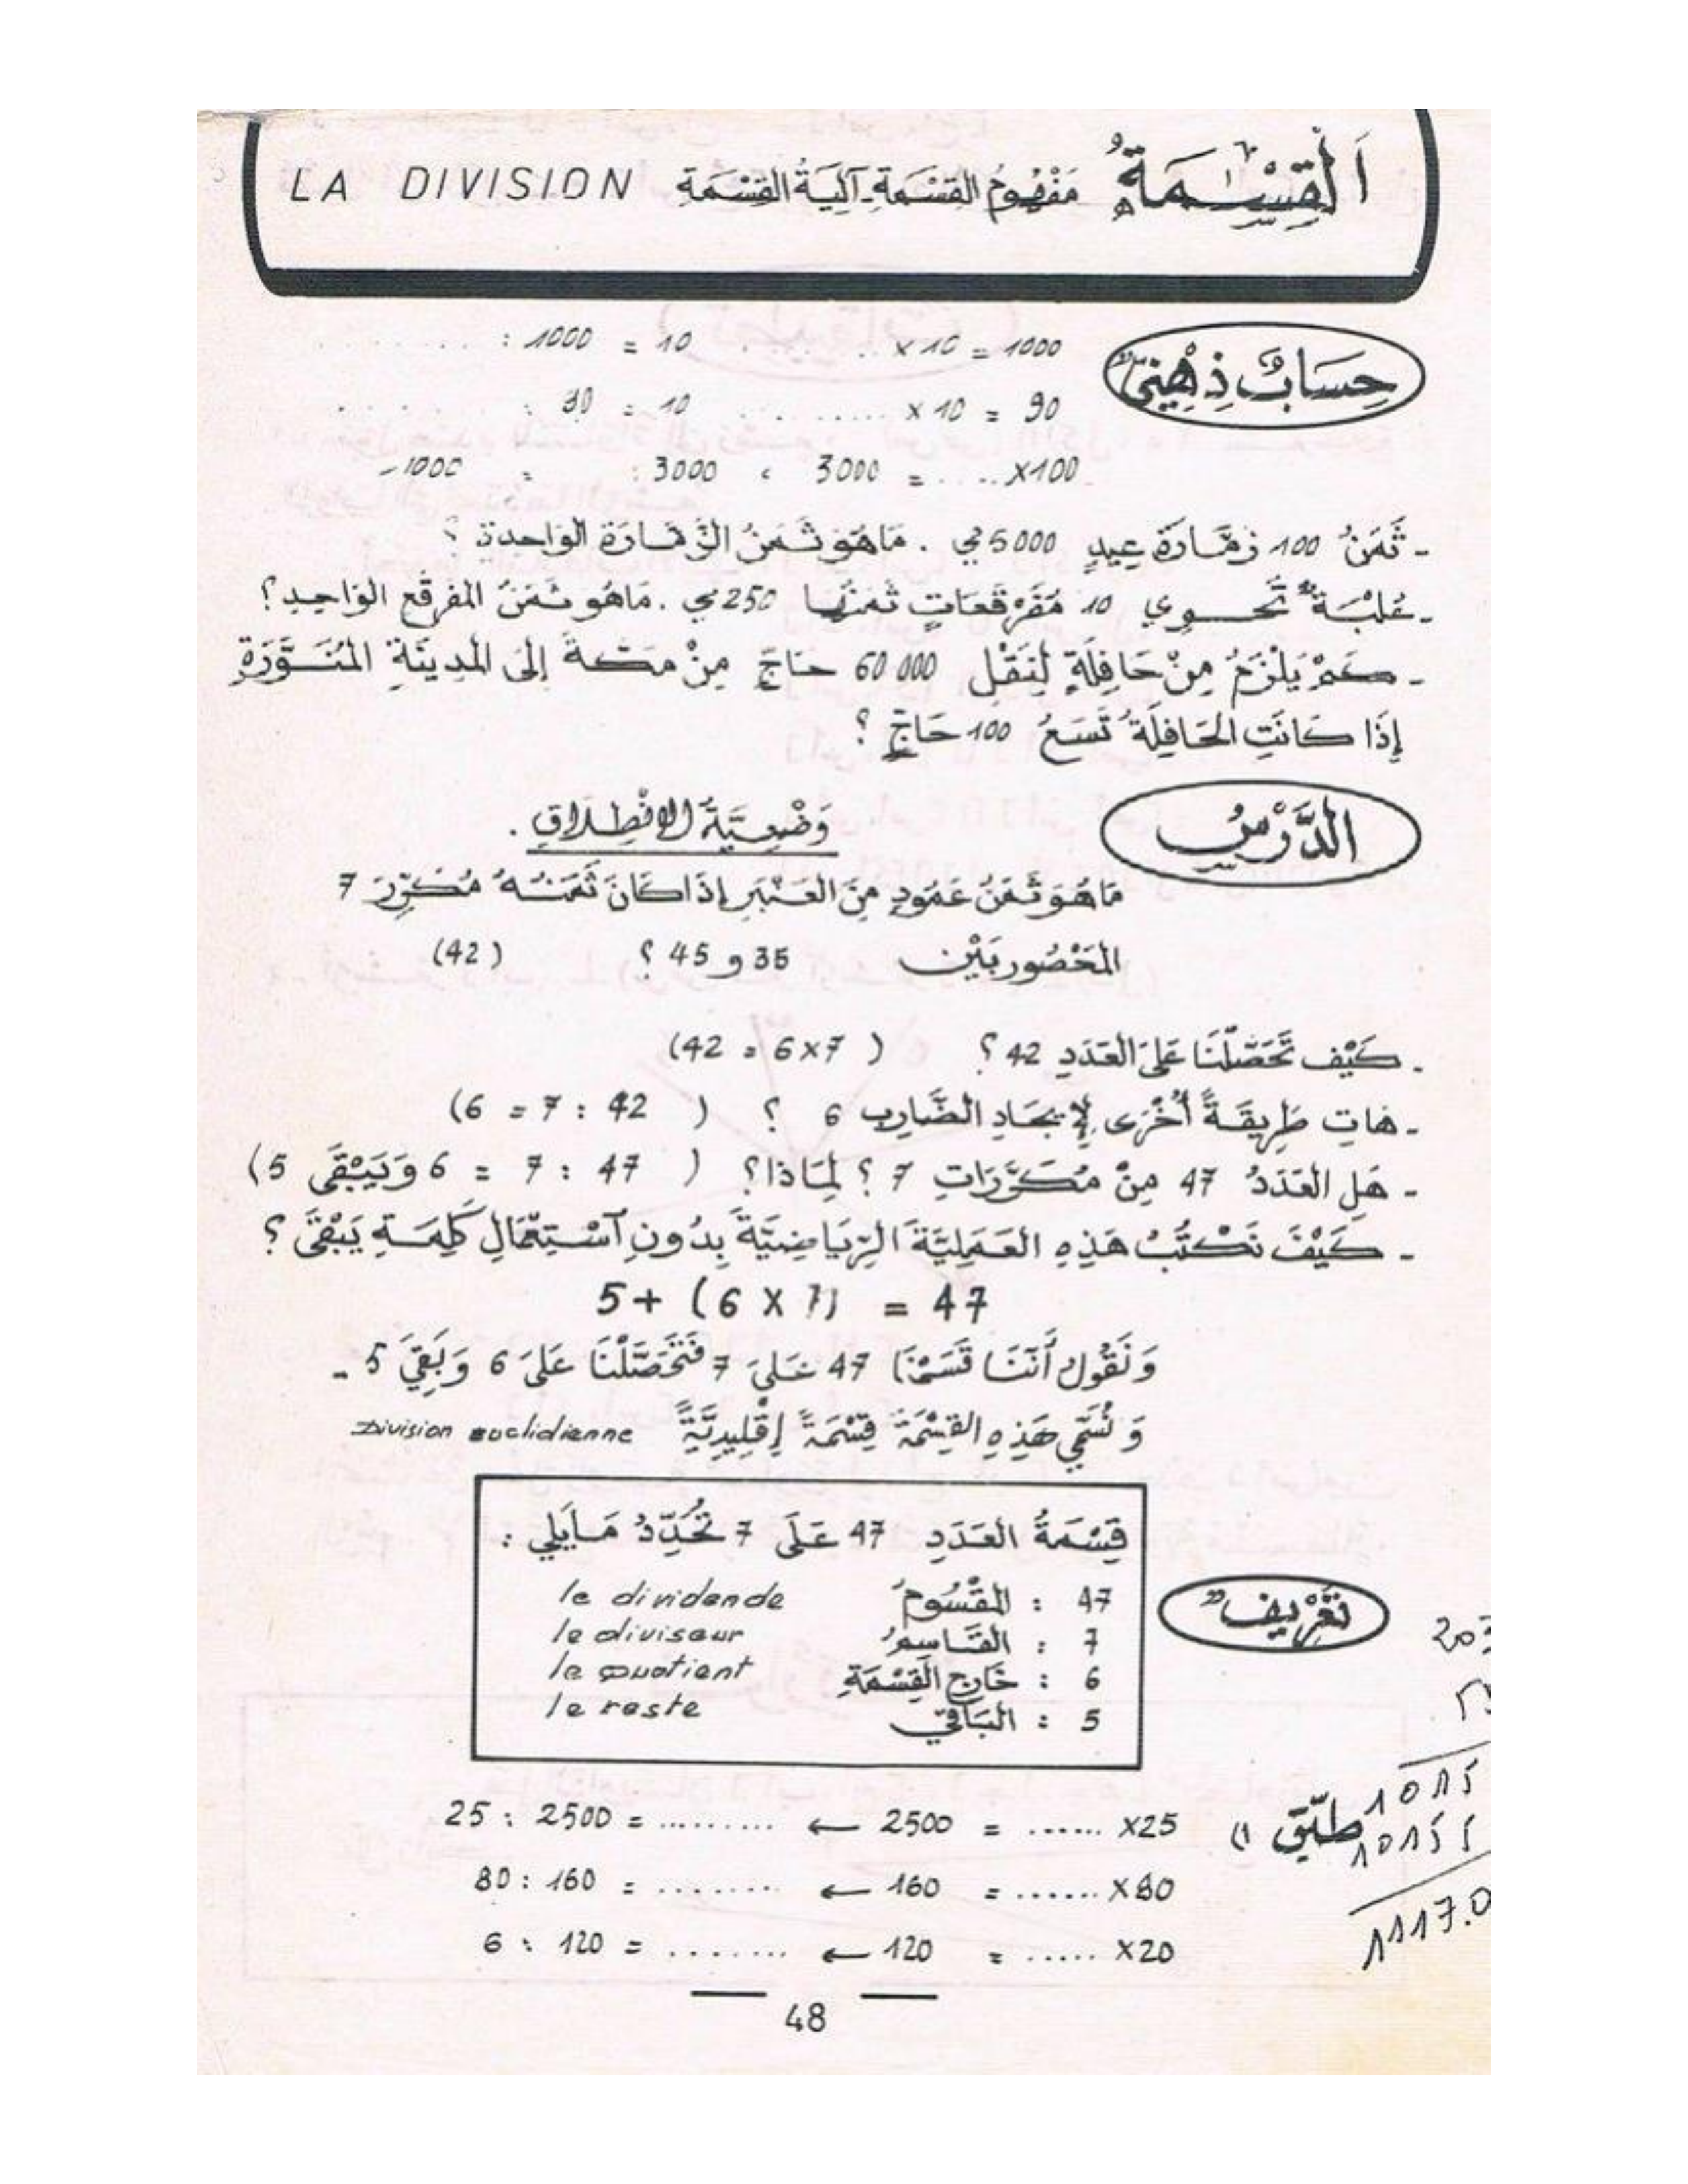 اَلْقِسْمَةُ مَفْهُومُ القِسْمَةِ - آلِيَةُ القِسْمَةِ LA DIVISION
حِسَابٌ ذِهْنِيٌّ
1000 = 10 × .. .... 10 = 1000 : ........
90 = 10 × ......... 10 = 90 : ........
100× ..... = 3000 ، 3000 : = 1000
- ثَمَنُ 100 زمَّارَةَ عِيدٍ 5000 مي . مَا هُوَ ثَمَنُ الزمَّارَة الوَاحدة ؟
- عُلْبَةٌ تَحْوِي 10 مُفَرْقَعَاتٍ ثَمَنُهَا 250 مي . مَا هُو ثَمَنُ المفرقع الوَاحِدِ ؟
- كَمْ يَلْزَمُ مِنْ حَافِلَةٍ لِنَقْلِ 60 000 حَاجّ مِنْ مَكَّةَ إِلَى المَدِينَةِ المُنَوَّرَةِ
إِذَا كَانَتِ الحَافِلَةُ تَسَعُ 100 حَاجٍّ ؟
الدَّرْسُ
وَضْعِيَّةُ الاِنْطِلَاقِ .
مَا هُوَ ثَمَنُ عَمُودٍ مِنَ العَنْبَرِ إِذَا كَانَ ثَمَنُهُ مُكَرِّرَ 7
المَحْصُور بَيْن 35 و 45 ؟ (42)
- كَيْفَ تَحَصَّلْنَا عَلَى العَدَدِ 42 ؟ ( 7×6 = 42)
- هَاتِ طَرِيقَةً أُخْرَى لِإِيجَادِ الضَّارِبِ 6 ؟ ( 42 : 7 = 6)
- هَلِ العَدَدُ 47 مِنْ مُكَرَّرَاتِ 7 ؟ لِمَاذا ؟ ( 47 : 7 = 6 وَيَبْقَى 5)
- كَيْفَ نَكْتُبُ هَذِهِ العَمَلِيَّةَ الرِّيَاضِيَّةَ بِدُونِ آسْتِعْمَالِ كَلِمَةِ يَبْقَى ؟
47 = (7 × 6) + 5
وَنَقُولُ أَنَّنَا قَسَمْنَا 47 عَلَى 7 فَتَحَصَّلْنَا عَلَى 6 وَبَقِيَ 5 -
وَنُسَمِّي هَذِهِ القِسْمَةَ قِسْمَةً إِقْلِيدِيَّةً Division euclidienne
قِسْمَةُ العَدَدِ 47 عَلَى 7 تُحَدِّدُ مَا يَلِي :
تَعْرِيفٌ
47 : المَقْسُومُ le dividende
7 : القَاسِمُ le diviseur
6 : خَارِج القِسْمَةِ le quotient
5 : البَاقِي le reste
طبّق 1)
25× ...... = 2500 ← ......... = 2500 : 25
80× ...... = 160 ← ........ = 160 : 80
20× ..... = 120 ← ........ = 120 : 6
48